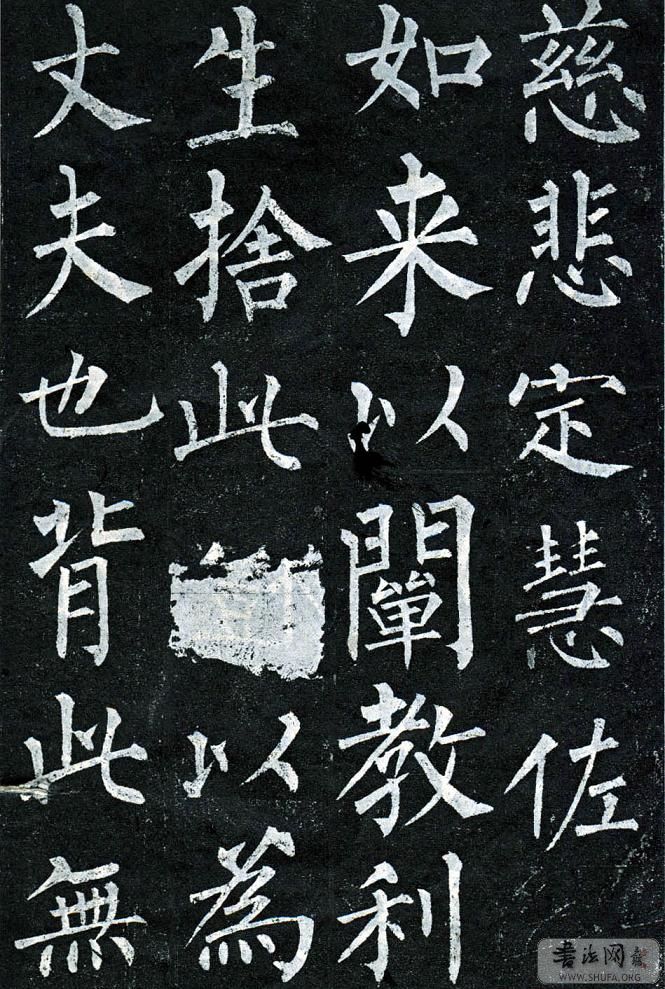 慈悲定慧佐
如来以闡教利
生捨此□以為
丈夫也背此無
書法网
WWW.SHUFA.ORG